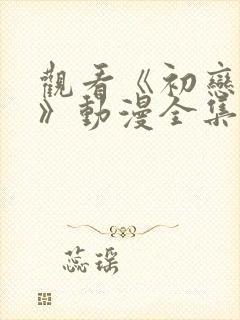 觀看《初戀
》動漫全集
蕊琛